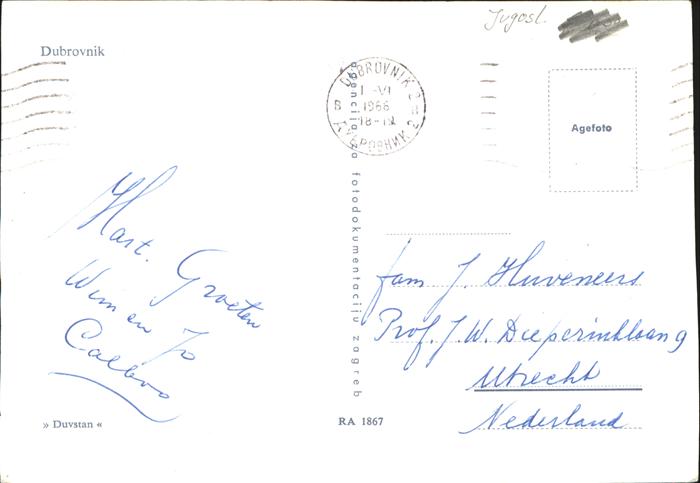 Jugosl.
Dubrovnik
DUBROVNIK 2
1.-VI
1966
18-IX
B
ДУБРОВНИК 2
Agefoto
agencija za fotodokumentaciju zagreb
Hart. Groeten
Wim en Jo
fam J. Huveneers
Prof. J. W. Dieperinklaan 9
Utrecht
Nederland
» Duvstan «
RA 1867